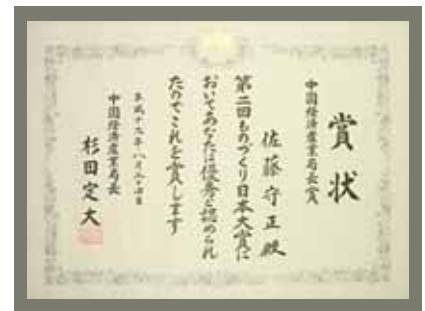 賞状
中国経済産業局長賞
佐藤守正殿
第二回ものづくり日本大賞に
おいてあなたは優秀と認められ
たのでこれを賞します
平成十九年八月二十四日
中国経済産業局長
杉田定大